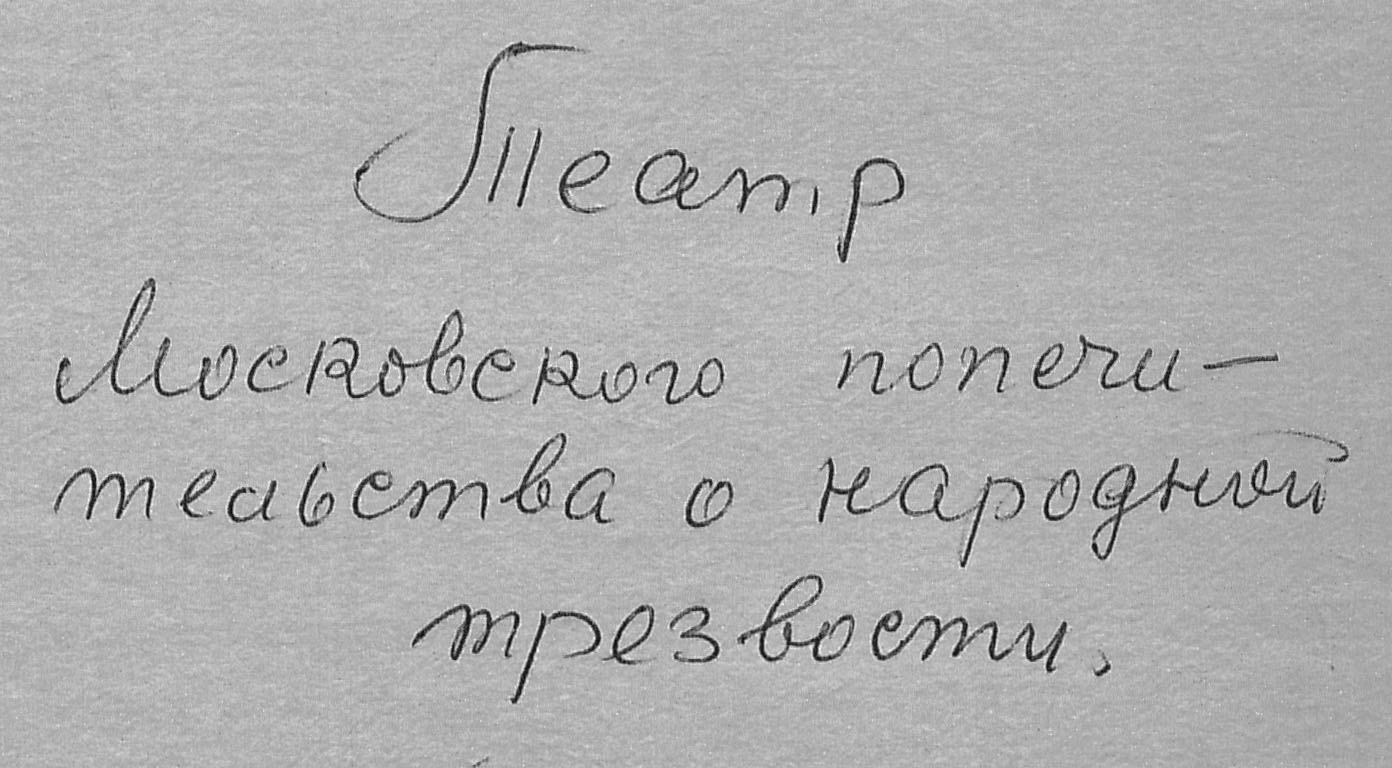 Театр
Московского попечи-
тельства о народной
трезвости.